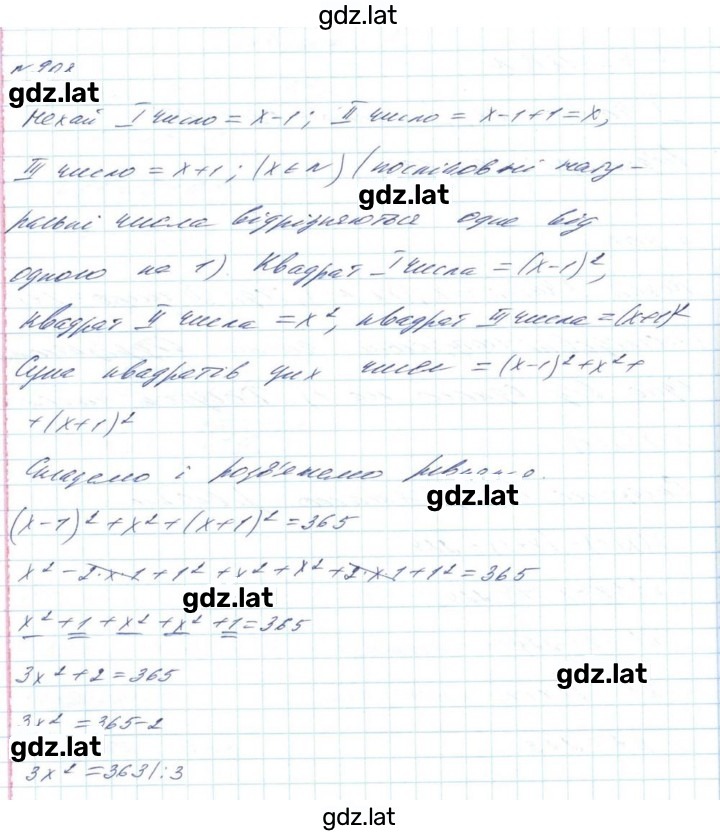 gdz.lat
№ 908
gdz.lat
Нехай I число = x-1; II число = x-1+1=x,
III число = x+1; (x∈N) (послідовні нату-
gdz.lat
ральні числа відрізняються одне від
одного на 1). Квадрат I числа = (x-1)²,
квадрат II числа = x², квадрат III числа = (x+1)²
Сума квадратів цих чисел = (x-1)²+x²+
+(x+1)²
Складемо і розв'яжемо
gdz.lat
(x-1)²+x²+(x+1)²=365
x²-2·x·1+1²+x²+x²+2·x·1+1²=365
gdz.lat
x²+1+x²+x²+1=365
3x²+2=365
gdz.lat
3x²=365-2
gdz.lat
3x²=363/:3
gdz.lat